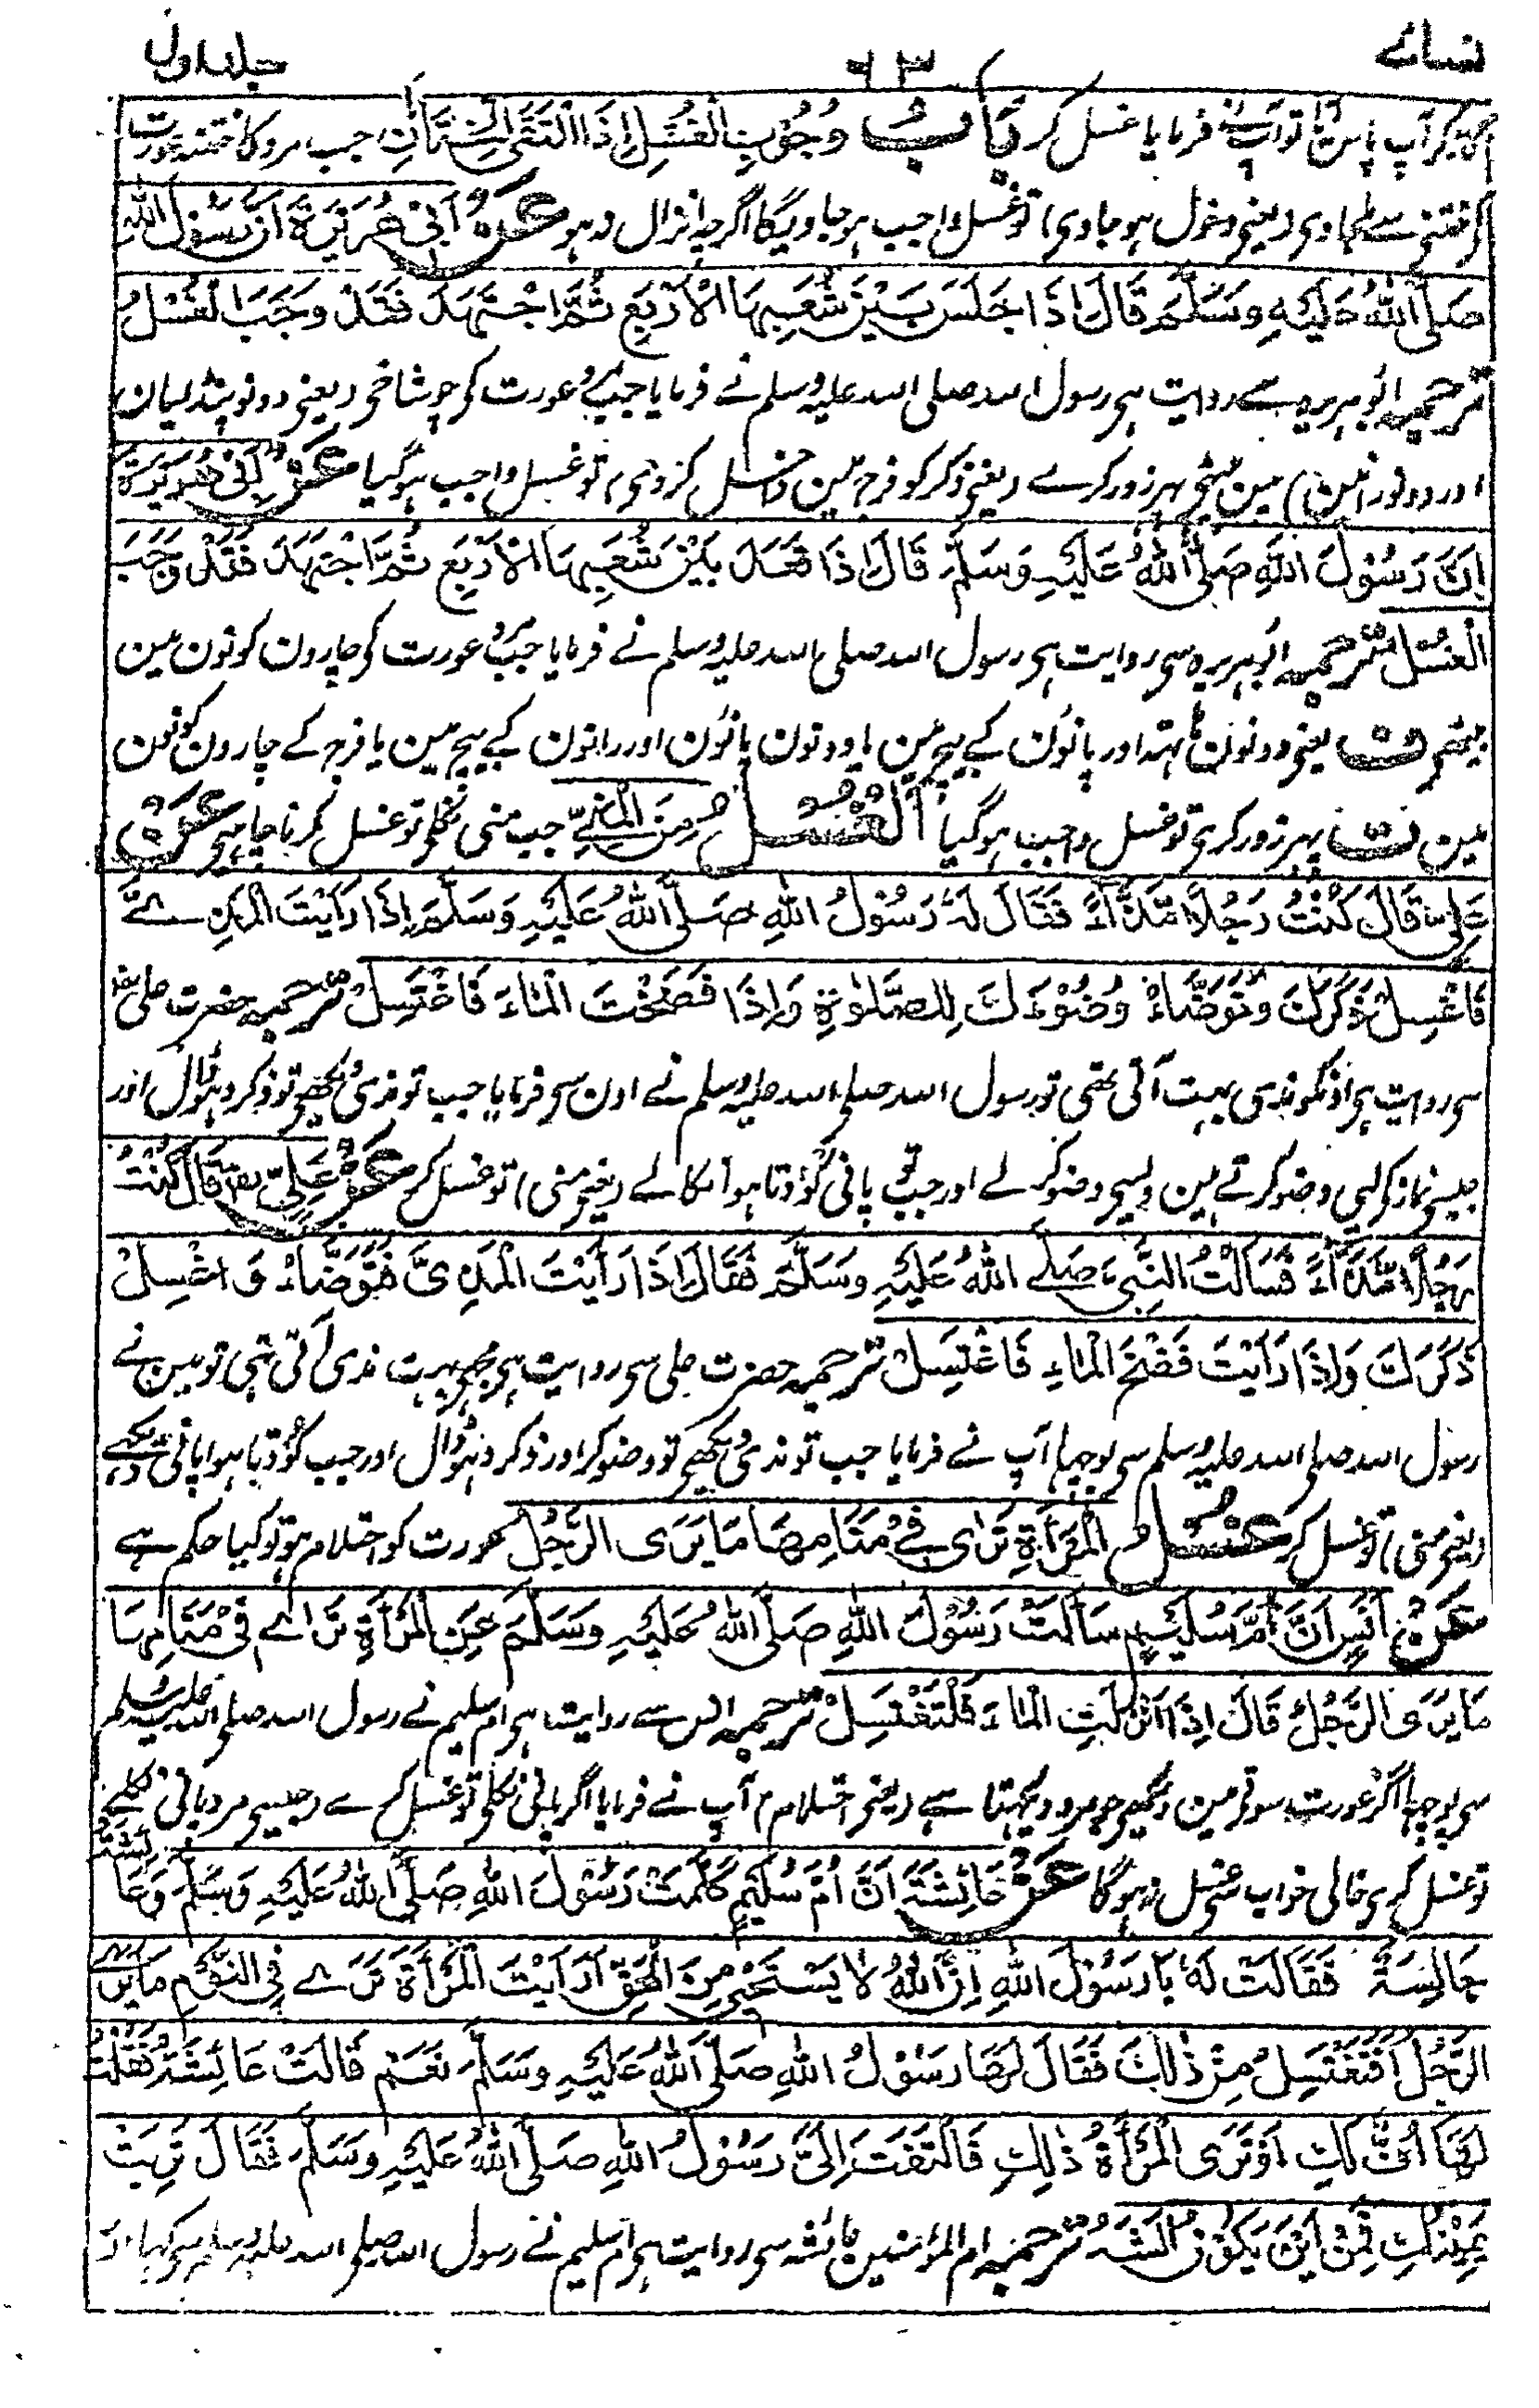 نسائے ۶۳ جلد اول
کر آپ پاس تو آپ نے فرمایا غسل کر بَابُ وُجُوْبِ الْغُسْلِ اِذَا الْتَقَى الْخِتَانَانِ جب مرد کا ختنہ عورت
کے ختنے سے ملجاوی (یعنی دخول ہو جاوی) تو غسل واجب ہو جاویگا اگرچہ انزال نہ ہو عَنْ اَبِیْ هُرَيْرَةَ اَنَّ رَسُوْلَ اللّٰهِ
صَلَّى اللّٰهُ عَلَيْهِ وَسَلَّمَ قَالَ اِذَا جَلَسَ بَيْنَ شُعَبِهَا الْاَرْبَعِ ثُمَّ اجْتَهَدَ فَقَدْ وَجَبَ الْغُسْلُ
ترجمہ ابو ہریرہ سے روایت ہی رسول اللہ صلی اللہ علیہ وسلم نے فرمایا جب مرد عورت کی چو شاخی (یعنی دونو پنڈلیان
اور دونو رانین) مین بیٹھی پہر زور کرے (یعنی ذکر کو فرج مین داخل کر دی) تو غسل واجب ہو گیا عَنْ اَبِیْ هُرَيْرَةَ
اَنَّ رَسُوْلَ اللّٰهِ صَلَّى اللّٰهُ عَلَيْهِ وَسَلَّمَ قَالَ اِذَا قَعَدَ بَيْنَ شُعَبِهَا الْاَرْبَعِ ثُمَّ اجْتَهَدَ فَقَدْ وَجَبَ
الْغُسْلُ ترجمہ ابو ہریرہ سی روایت ہی رسول اللہ صلی اللہ علیہ وسلم نے فرمایا جب مرد عورت کی چارون کونون مین
بیٹھی ف یعنی دونون ہاتہ اور پانوٗن کے بیچ مین یا دونون پانوٗن اور رانون کے بیچ مین یا فرج کے چارون کونون
مین ف پہر زور کری تو غسل واجب ہو گیا اَلْغُسْلُ مِنَ الْمَنِيِّ جب منی نکلی تو غسل کرنا چاہیی عَنْ
عَلِيٍّ قَالَ كُنْتُ رَجُلًا مَذَّاءً فَقَالَ لَهُ رَسُوْلُ اللّٰهِ صَلَّى اللّٰهُ عَلَيْهِ وَسَلَّمَ اِذَا رَاَيْتَ الْمَذِيَّ
فَاغْسِلْ ذَكَرَكَ وَتَوَضَّأْ وُضُوْءَكَ لِلصَّلٰوةِ وَاِذَا فَضَخْتَ الْمَاءَ فَاغْتَسِلْ ترجمہ حضرت علی
سی روایت ہی اونکو مذی بہت آتی تھی تو رسول اللہ صلی اللہ علیہ وسلم نے اون سی فرمایا جب تو مذی دیکھی تو ذکر دہو ڈال اور
جیسی نماز کو لیی وضو کرتے ہین ویسی وضو کر لے اور جب تو پانی کودتا ہوا نکالے (یعنی منی) تو غسل کر عَنْ عَلِيٍّ قَالَ كُنْتُ
رَجُلًا مَذَّاءً فَسَاَلْتُ النَّبِيَّ صَلَّى اللّٰهُ عَلَيْهِ وَسَلَّمَ فَقَالَ اِذَا رَاَيْتَ الْمَذِيَّ فَتَوَضَّأْ وَاغْسِلْ
ذَكَرَكَ وَاِذَا رَاَيْتَ فَضْخَ الْمَاءِ فَاغْتَسِلْ ترجمہ حضرت علی سی روایت ہی مجھی بہت مذی آتی تھی تو مین نے
رسول اللہ صلی اللہ علیہ وسلم سی پوچہا آپ نے فرمایا جب تو مذی دیکھی تو وضو کر اور ذکر دہو ڈال اور جب کودتا ہوا پانی دیکہے
(یعنی منی) تو غسل کر غُسْلُ الْمَرْأَةِ تَرٰى فِیْ مَنَامِهَا مَا يَرَى الرَّجُلُ عورت کو احتلام ہو تو کیا حکم ہے
عَنْ اَنَسٍ اَنَّ اُمَّ سُلَيْمٍ سَاَلَتْ رَسُوْلَ اللّٰهِ صَلَّى اللّٰهُ عَلَيْهِ وَسَلَّمَ عَنِ الْمَرْأَةِ تَرٰے فِیْ مَنَامِهَا
مَا يَرَى الرَّجُلُ قَالَ اِذَا اَنْزَلَتِ الْمَاءَ فَلْتَغْتَسِلْ ترجمہ انس سے روایت ہی ام سلیم نے رسول اللہ صلی اللہ علیہ وسلم
سی پوچہا اگر عورت سوتی مین دیکھی جو مرد دیکہتا ہے (یعنی احتلام) آپ نے فرمایا اگر پانی نکلی تو غسل کرے (جیسی مرد پانی نکلے
تو غسل کری خالی خواب سی غسل نہوگا عَنْ عَائِشَةَ اَنَّ اُمَّ سُلَيْمٍ كَلَّمَتْ رَسُوْلَ اللّٰهِ صَلَّى اللّٰهُ عَلَيْهِ وَسَلَّمَ وَعَائِشَةُ
جَالِسَةٌ فَقَالَتْ لَهُ يَا رَسُوْلَ اللّٰهِ اِنَّ اللّٰهَ لَا يَسْتَحْيِیْ مِنَ الْحَقِّ اَرَاَيْتَ الْمَرْأَةَ تَرٰے فِی النَّوْمِ مَا يَرَى
الرَّجُلُ اَفَتَغْتَسِلُ مِنْ ذٰلِكَ فَقَالَ لَهَا رَسُوْلُ اللّٰهِ صَلَّى اللّٰهُ عَلَيْهِ وَسَلَّمَ نَعَمْ قَالَتْ عَائِشَةُ فَقُلْتُ
لَهَا اُفٍّ لَكِ اَوَتَرَى الْمَرْأَةُ ذٰلِكِ فَالْتَفَتَ اِلَيَّ رَسُوْلُ اللّٰهِ صَلَّى اللّٰهُ عَلَيْهِ وَسَلَّمَ فَقَالَ تَرِبَتْ
يَمِيْنُكِ فَمِنْ اَيْنَ يَكُوْنُ الشَّبَهُ ترجمہ ام المومنین عائشہ سی روایت ہی ام سلیم نے رسول اللہ صلی اللہ علیہ وسلم سی کہا